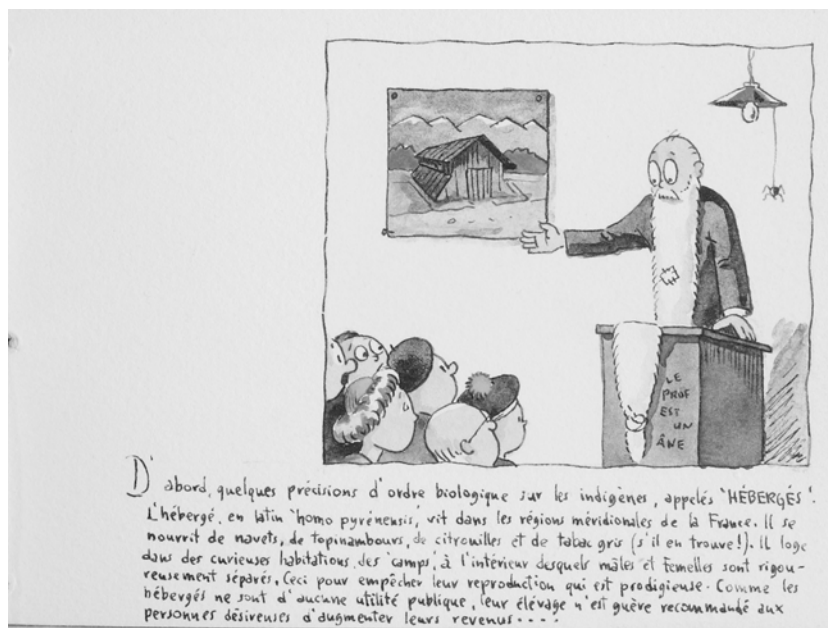 LE
PROF
EST
UN
ÂNE
D'abord, quelques précisions d'ordre biologique sur les indigènes, appelés "HÉBERGÉS".
L'hébergé, en latin "homo pyrénensis", vit dans les régions méridionales de la France. Il se
nourrit de navets, de topinambours, de citrouilles et de tabac gris (s'il en trouve!). Il loge
dans des curieuses habitations, des "camps", à l'intérieur desquels mâles et femelles sont rigou-
reusement séparés. Ceci pour empêcher leur reproduction qui est prodigieuse. Comme les
hébergés ne sont d'aucune utilité publique, leur élévage n'est guère recommandé aux
personnes désireuses d'augmenter leurs revenus....